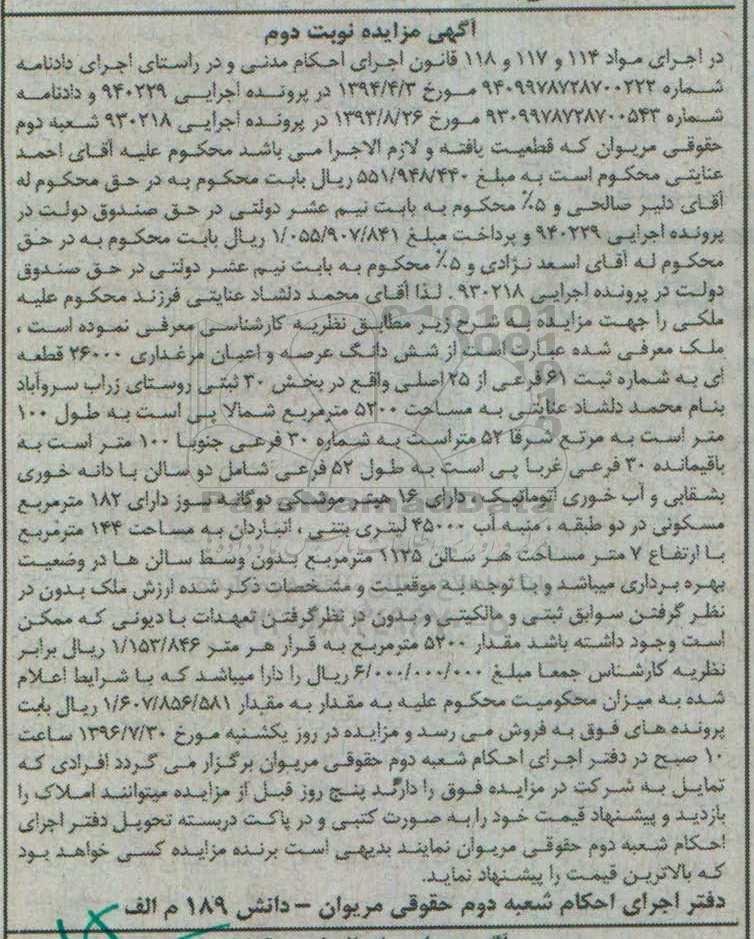 آگهی مزایده نوبت دوم
در اجرای مواد ۱۱۴ و ۱۱۷ و ۱۱۸ قانون اجرای احکام مدنی و در راستای اجرای دادنامه
شماره ۹۴۰۹۹۷۸۷۲۸۷۰۰۲۲۲ مورخ ۱۳۹۴/۴/۳ در پرونده اجرایی ۹۴۰۲۲۹ و دادنامه
شماره ۹۳۰۹۹۷۸۷۲۸۷۰۰۵۴۳ مورخ ۱۳۹۳/۸/۲۶ در پرونده اجرایی ۹۳۰۲۱۸ شعبه دوم
حقوقی مریوان که قطعیت یافته و لازم الاجرا می باشد محکوم علیه آقای احمد
عنایتی محکوم است به مبلغ ۵۵۱/۹۴۸/۴۴۰ ریال بابت محکوم به در حق محکوم له
آقای دلیر صالحی و ۵٪ محکوم به بابت نیم عشر دولتی در حق صندوق دولت در
پرونده اجرایی ۹۴۰۲۲۹ و پرداخت مبلغ ۱/۰۵۵/۹۰۷/۸۴۱ ریال بابت محکوم به در حق
محکوم له آقای اسعد نژادی و ۵٪ محکوم به بابت نیم عشر دولتی در حق صندوق
دولت در پرونده اجرایی ۹۳۰۲۱۸ . لذا آقای محمد دلشاد عنایتی فرزند محکوم علیه
ملکی را جهت مزایده به شرح زیر مطابق نظریه کارشناسی معرفی نموده است ،
ملک معرفی شده عبارت است از شش دانگ عرصه و اعیان مرغداری ۲۶۰۰۰ قطعه
ای به شماره ثبت ۶۱ فرعی از ۲۵ اصلی واقع در بخش ۳۰ ثبتی روستای زراب سروآباد
بنام محمد دلشاد عنایتی به مساحت ۵۲۰۰ مترمربع شمالا پی است به طول ۱۰۰
متر است به مرتع شرقا ۵۲ متراست به شماره ۳۰ فرعی جنوبا ۱۰۰ متر است به
باقیمانده ۳۰ فرعی غربا پی است به طول ۵۲ فرعی شامل دو سالن با دانه خوری
بشقابی و آب خوری اتوماتیک ، دارای ۱۶ هیتر موشکی دوگانه سوز دارای ۱۸۲ مترمربع
مسکونی در دو طبقه ، منبه آب ۴۵۰۰۰ لیتری بتنی ، انباردان به مساحت ۱۴۴ مترمربع
با ارتفاع ۷ متر مساحت هر سالن ۱۱۲۵ مترمربع بدون وسط سالن ها در وضعیت
بهره برداری میباشد و با توجه به موقعیت و مشخصات ذکر شده ارزش ملک بدون در
نظر گرفتن سوابق ثبتی و مالکیتی و بدون در نظرگرفتن تعهدات یا دیونی که ممکن
است وجود داشته باشد مقدار ۵۲۰۰ مترمربع به قرار هر متر ۱/۱۵۳/۸۴۶ ریال برابر
نظریه کارشناس جمعا مبلغ ۶/۰۰۰/۰۰۰/۰۰۰ ریال را دارا میباشد که با شرایط اعلام
شده به میزان محکومیت محکوم علیه به مقدار به مقدار ۱/۶۰۷/۸۵۶/۵۸۱ ریال بابت
پرونده های فوق به فروش می رسد و مزایده در روز یکشنبه مورخ ۱۳۹۶/۷/۳۰ ساعت
۱۰ صبح در دفتر اجرای احکام شعبه دوم حقوقی مریوان برگزار می گردد افرادی که
تمایل به شرکت در مزایده فوق را دارند پنج روز قبل از مزایده میتوانند املاک را
بازدید و پیشنهاد قیمت خود را به صورت کتبی و در پاکت دربسته تحویل دفتر اجرای
احکام شعبه دوم حقوقی مریوان نمایند بدیهی است برنده مزایده کسی خواهد بود
که بالاترین قیمت را پیشنهاد نماید.
دفتر اجرای احکام شعبه دوم حقوقی مریوان – دانش ۱۸۹ م الف